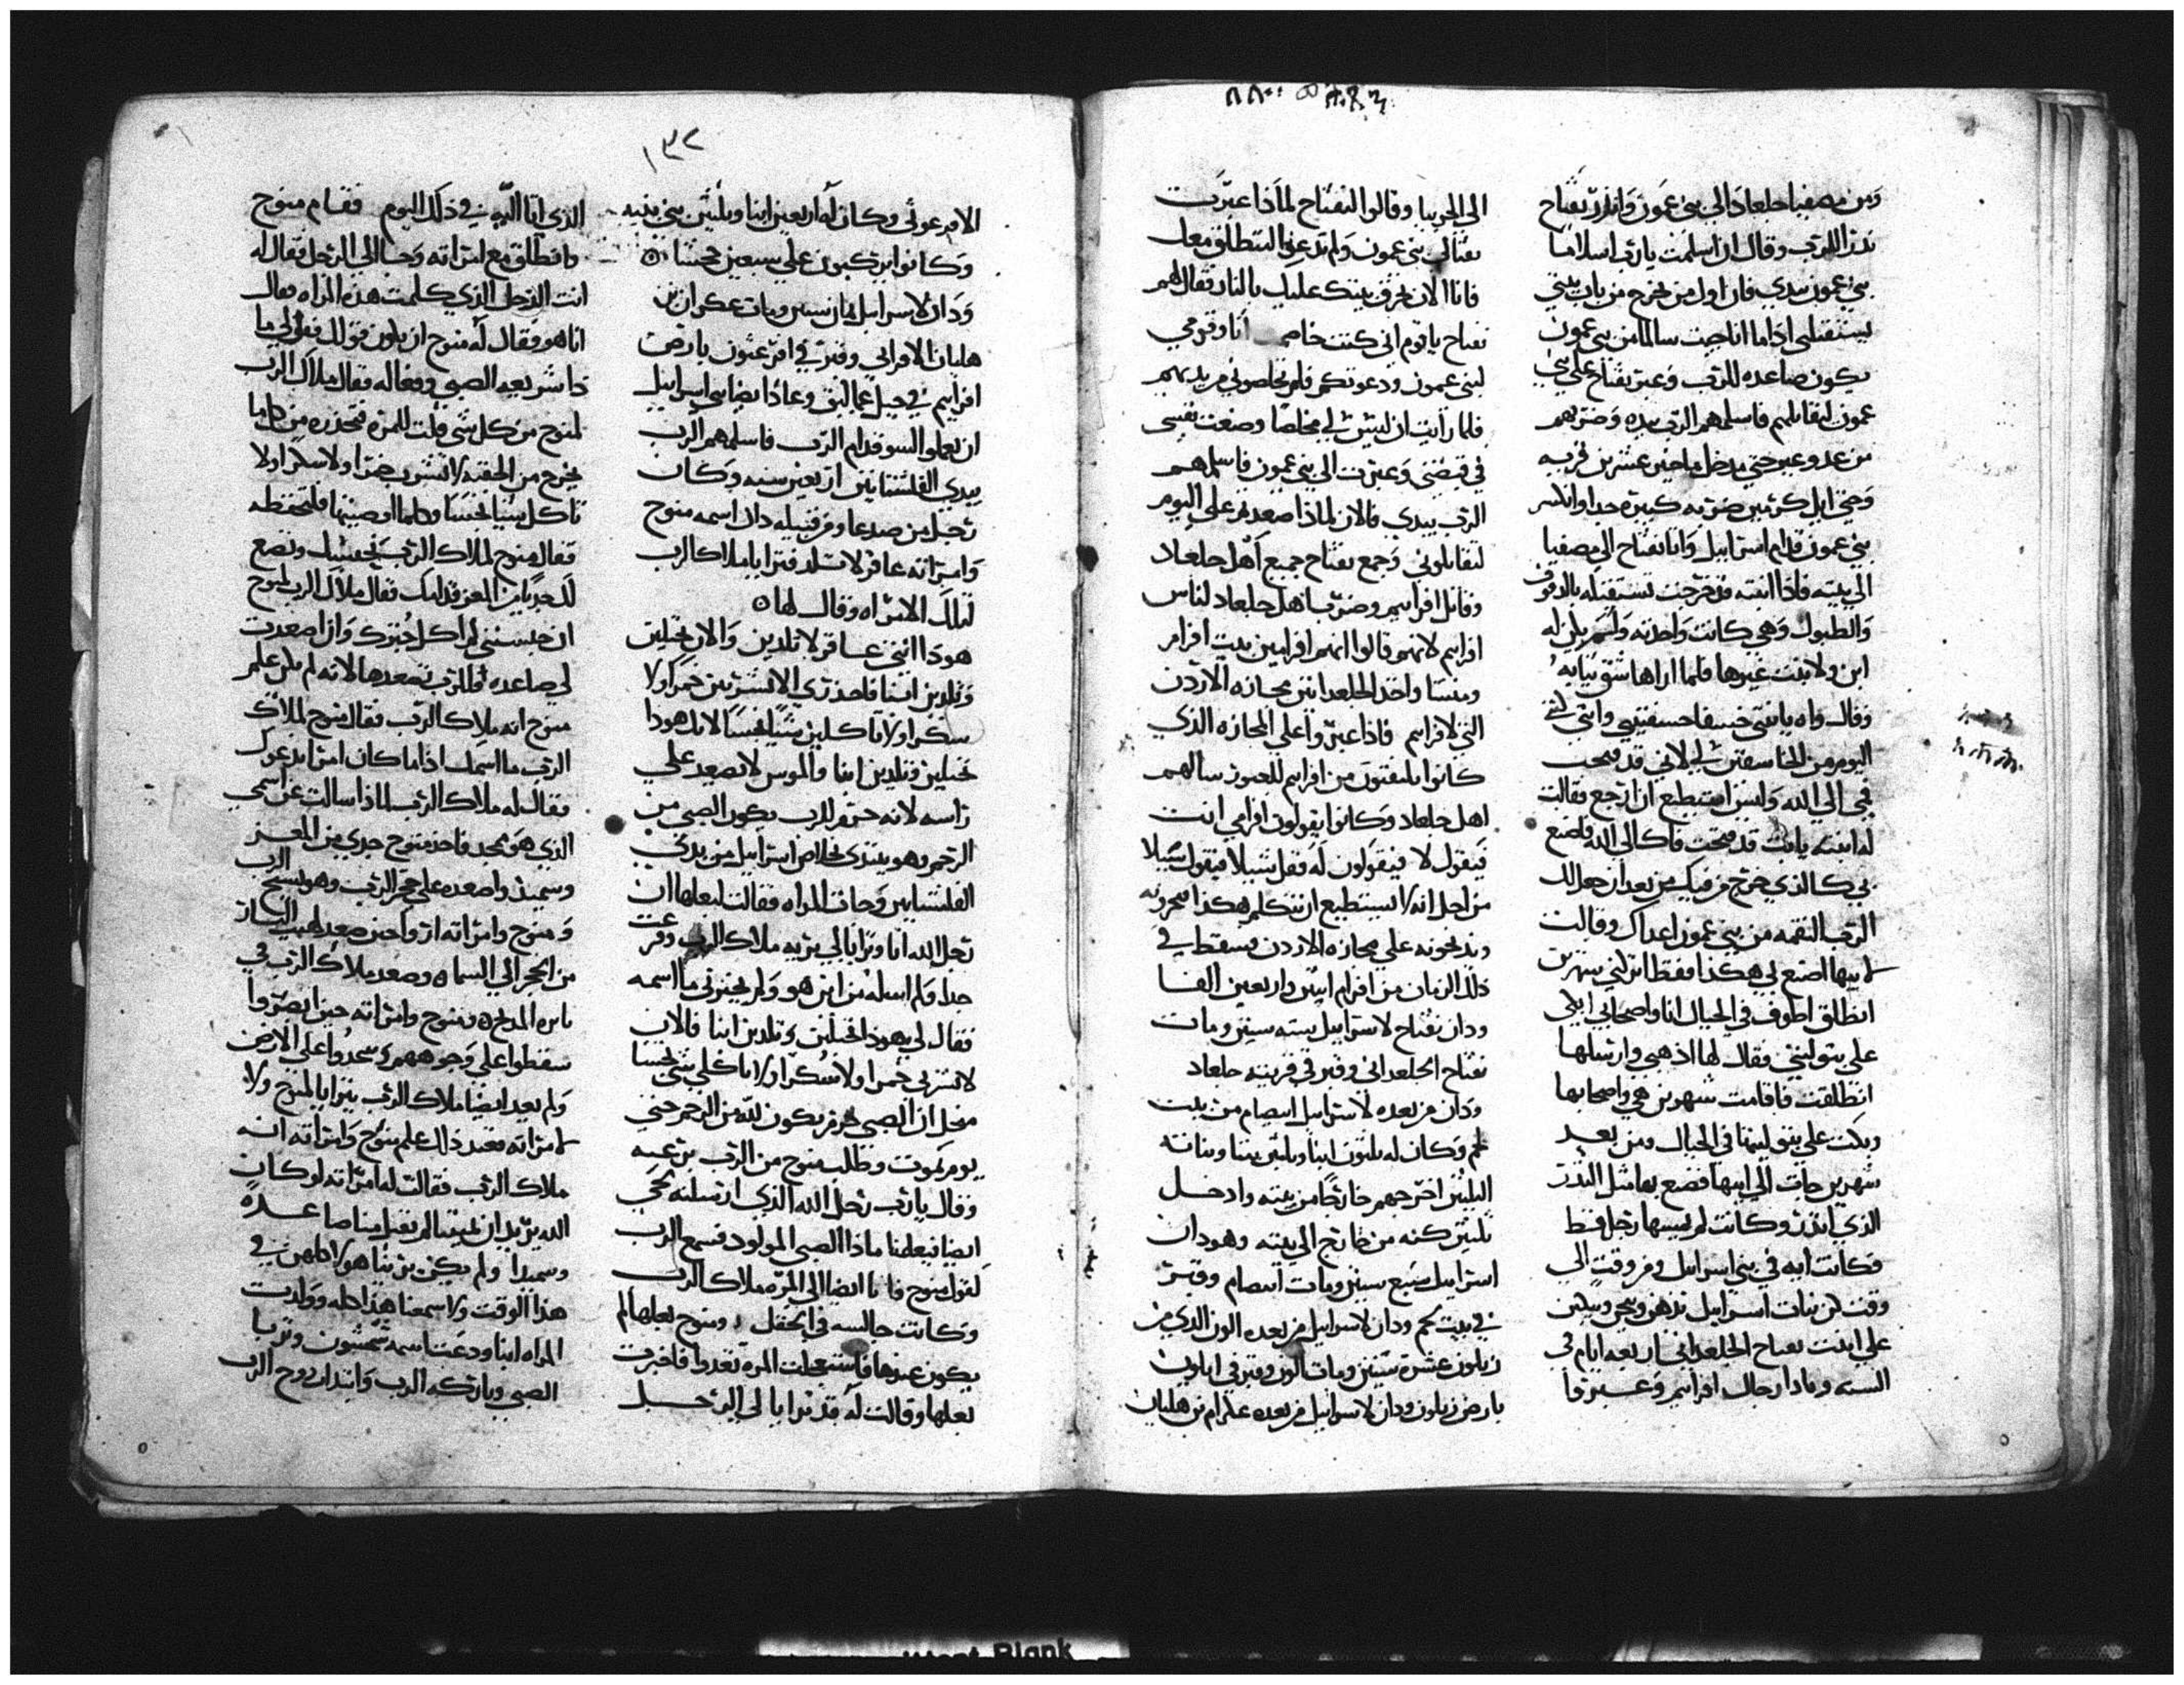 ومن مصفيا جلعاد الى بني عمون وانذر يفتاح
نذرا للرب وقال ان اسلمت يارب اسلاما
بني عمون بيدي فان اول من يخرج من باب بيتي
ليستقبلني اذا ما انا جيت سالما من بني عمون
يكون صاعده للرب وعبر يفتاح على بني
عمون ليقاتلهم فاسلمهم الرب بيده وضربهم
من عدوعير حتى مدخل ماحير عشرين قريه
وحتى ابل كرمين ضربه كبيره جدا وانكسر
بني عمون قدام اسراييل واتا يفتاح الى مصفيا
الى بيته فاذا ابنته قد خرجت تستقبله بالدفوف
والطبول وهي كانت واحدته ولم يكن له
ابن ولا بنت غيرها فلما اراها شق ثيابه
وقال واه يا بنتي خسفا خسفتيني وانتي انتي
اليوم من الخاسفين لي لاني قد فتحت
فمي الى الله وليس استطيع ان ارجع فقالت
له ابنته يابت قد فتحت فاك الى الله فاصنع
بي كالذي خرج من فيك من بعد ان جعل لك
الرب النقمه من بني عمون اعداك وقالت
لابيها اصنع لي هكذا فقط اتركني شهرين
انطلق اطوف في الجبال انا واصحابي ابكي
على بتوليتي فقال لها اذهبي وارسلها
انطلقت فاقامت شهرين هي واصحابها
وبكت على بتوليتها في الجبال ومن بعد
شهرين جات الى ابيها فصنع بها مثل النذر
الذي انذر وكانت لم يمسها رجل قط
فكانت ايه في بني اسراييل ومن وقت الى
وقت كن بنات اسراييل تذهبن وينحن ويبكين
على ابنت يفتاح الجلعداني اربعه ايام في
السنه ونادا رجال افرايم وعبروا
الى الجربيا وقالوا ليفتاح لماذا عبرت
تقاتل بني عمون ولم تدعونا لننطلق معك
فانا الان نحرق بيتك عليك بالنار فقال لهم
يفتاح يا قوم اني كنت خاصم انا وقومي
لبني عمون ودعوتكم فلم تخلصوني من يديهم
فلما رايت ان ليس لي مخلصا وضعت نفسي
في قبضتي وعبرت الى بني عمون فاسلمهم
الرب بيدي فالان لماذا صعدتم علي اليوم
لتقاتلوني وجمع يفتاح جميع اهل جلعاد
وقاتل افرايم وضرب اهل جلعاد لناس
افرايم لانهم قالوا انهم افرامين بيت افرام
ومنسا واخذ الجلعدانيين مجازه الاردن
التي لافرايم فاذا عبروا على المجازه الذي
كانوا يفلتون من افرايم للعبور سالهم
اهل جلعاد وكانوا يقولون افرامي انت
فيقول لا فيقولون له فقل شبيلا فيقول سبيلا
من اجل انه لا يستطيع ان يتكلم هكذا فيجرونه
ويذبحونه على مجازه الاردن فسقط في
ذلك الزمان من افرام اثنين واربعين الفا
ودان يفتاح لاسراييل سته سنين ومات
يفتاح الجلعداني وقبر في قريته جلعاد
ودان من بعده لاسراييل ابيصام من بيت
لحم وكان له ثلثون ابنا وثلثين بنتا وبناته
الثلثين اخرجهم خارجا من بيته وادخل
ثلثين كنه من خارج الى بيته وهو دان
اسراييل سبع سنين ومات ابيصام وقبر
في بيت لحم ودان لاسراييل من بعده الون الذي من
زبلون عشرة سنين ومات الون وقبر في ايلون
بارض زبلون ودان لاسراييل من بعده عكرام بن هليان
١٣٢
الافرعوني وكان له اربعين ابنا وثلثين بني بنيه
وكانوا يركبون على سبعين جحشا
ودان لاسراييل ثمان سنين ومات عكران بن
هليان الافراني وقبر في افرعثون بارض
افرايم في جبل عماليق وعادا ايضا بني اسراييل
ان يعملوا السو قدام الرب فاسلمهم الرب
بيدي الفلشتانيين اربعين سنه وكان
رجل من صدعا ومن قبيله دان اسمه منوح
وامراته عاقر لا تلد فترايا ملاك الرب
لتلك الامراه وقال لها
هوذا انتي عاقر لا تلدين والان تحبلين
وتلدين ابنا فاحذري الا تشربين خمرا ولا
سكرا ولا تاكلين شيا نجسا لانك هوذا
تحبلين وتلدين ابنا والموس لا يصعد على
راسه لانه محرم للرب يكون الصبي من
الرحم وهو يبتدي بخلاص اسراييل من يدي
الفلشتانيين وجات المراه فقالت لبعلها ان
رجل الله اتا وترايا لي بزيه ملاك الرب وفزعت
جدا ولم اسله من اين هو ولم يخبرني ما اسمه
فقال لي هوذا تحبلين وتلدين ابنا فالان
لا تشربي خمرا ولا سكرا ولا تاكلي شي نجسا
من اجل ان الصبي محرم يكون لله من الرحم حتى
يوم يموت وطلب منوح من الرب برغبه
وقال يارب رجل الله الذي ارسلته يجي
ايضا فيعلمنا ماذا الصبي المولود فسمع الرب
لقول منوح فاتا ايضا الى المره ملاك الرب
وكانت جالسه في الحقل ومنوح بعلها لم
يكون عندها فاستعجلت المره تعدوا فاخبرت
بعلها وقالت له قد ترايا لي الرجل
الذي اتا اليه في ذلك اليوم فقام منوح
وانطلق مع امراته وجا الى الرجل فقال له
انت الرجل الذي كلمت هذه المراه فقال
انا هو فقال له منوح ان يكون قولك فقولي ما
ذا شريعه الصبي وفعاله فقال ملاك الرب
لمنوح من كل شي قلت للمره فتحذره من كل ما
يخرج من الجفنه لا تشرب خمرا ولا سكرا ولا
تاكل شيا نجسا وكلما اوصيتها فلتحفظه
فقال منوح لملاك الرب نحبسك ونصنع
لك جديا من المعز قدامك فقال ملاك الرب لمنوح
ان حبستني لم اكل خبزك وان اصعدت
لي صاعده فللرب تصعدها لانه لم يكن علم
منوح انه ملاك الرب فقال منوح لملاك
الرب ما اسمك اذا ما كان امرا ندعوك
فقال له ملاك الرب لماذا سالت عن اسمي
الذي هو مجد فاخذ منوح جدي من المعز
وسميذ واصعده على حجر الرب وهو يسبح الرب
ومنوح وامراته اروا حين صعد لهيب النار
من الحجر الى السماه وصعد ملاك الرب في
ناره المذبح ومنوح وامراته حين ابصروا
سقطوا على وجوههم وسجدوا على الارض
ولم يعد ايضا ملاك الرب يترايا لمنوح ولا
لامراته فعند ذلك علم منوح وامراته انه
ملاك الرب فقالت له امراته لو كان
الله يريد ان يميتنا لم يقبل منا صاعده
وسميذا ولم يكن يرينا هولا كلهن في
هذا الوقت ولا اسمعنا هذا كله وولدت
المراه ابنا ودعت اسمه شمشون وتربا
الصبي وباركه الرب وابتدات روح الرب